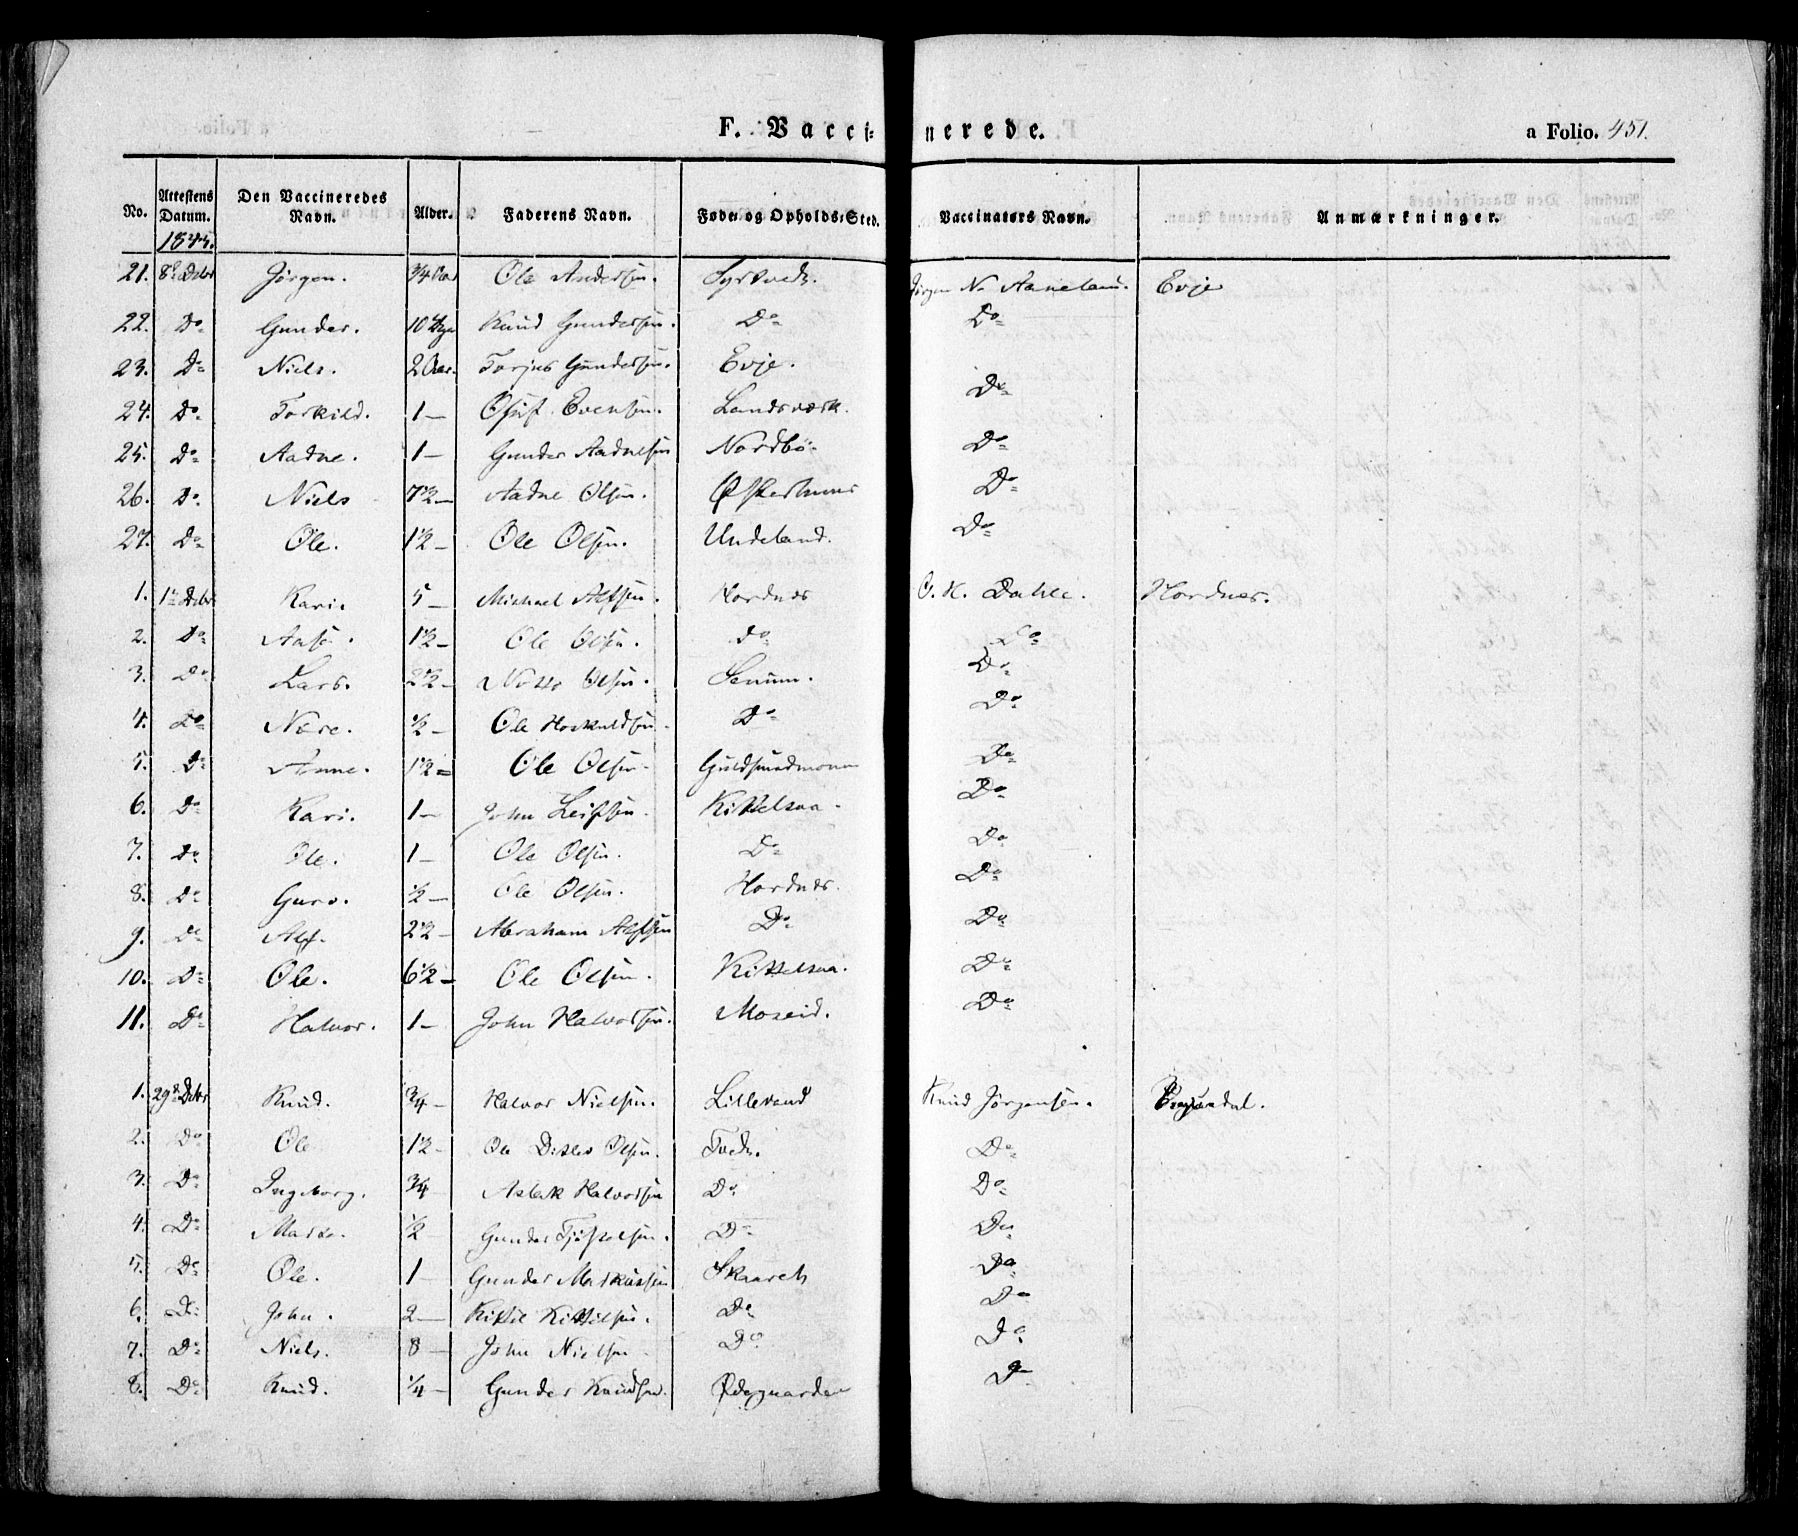 F. Vaccinerede. a Folio. 451.
No. Attestens Datum. Den Vaccineredes Navn. Alder. Faderens Navn. Føde- og Opholds-Sted. Vaccinators Navn. Anmærkninger.
21. 8de Debr Jörgen. 3/4 Aar Ole Andersen. Syrtvedt. Jörgen N. Aaneland. Evje
22. Do Gunder. 10 Knud Gundersen. Do Do
23. Do Niels. 2 Aar. Torjus Gundersen. Evje.
24. Do Torkild. 1 — Evensen. Landsværk. Do
25. Do Aadne. 1 — Gunder Aadnesen Nordbö. Do
26. Do Niels 7 1/2 — Aadne Olsen. Do
27. Do Ole. 1 1/2 — Ole Olsen. Undeland. Do
1. 1te Debr Kari. 5 — Michael Alfsen. Hordnes O. K. Dahle. Hordnes.
2. Do Aase. 1 1/2 — Ole Olsen. do Do
3. Do Lars. 2 1/2 — Notto Olsen. Senum. Do
4. Do Nære. 1/2 — Ole Hoskuldsen. Do Do
5. Do Anne. 1 1/2 = Ole Olsen. Guldsmedmoen Do
6. Do Kari. 1 — John Leifsen. Kittelsaa. Do
7. Do Ole. 1 — Ole Olsen. Do Do
8. Do Guro. 1/2 — Ole Olsen. Hordnes. Do
9. Do Alf. 2 1/2 — Abraham Alfsen Do Do
10. Do Ole. 6 1/2 — Ole Olsen. Kittelsaa. Do
11. Do Halvor. 1 — John Halvorsen. Moseid. Do
1. 29de Debr Knud. 3/4 — Halvor Nielsen. Lillevand Knud Jörgensen.
2. Do Ole 1 1/2 — Ole Ditlev Olsen. Tvedt. Do
3. Do Ingeborg. 3/4 Asbek Halvorsen Do Do
4. Do 1/2 — Gunder Tjöstolsen. Do Do
5. Do Ole. 1 — Gunder Markussen Skaareh Do
6. Do John. 2 — Kittil Kittilsen. Do Do
7. Do Niels. 8 — John Nielsen Do Do
8. Do Knud. 1/4 — Gunder Knudsen. Ødegaarden D